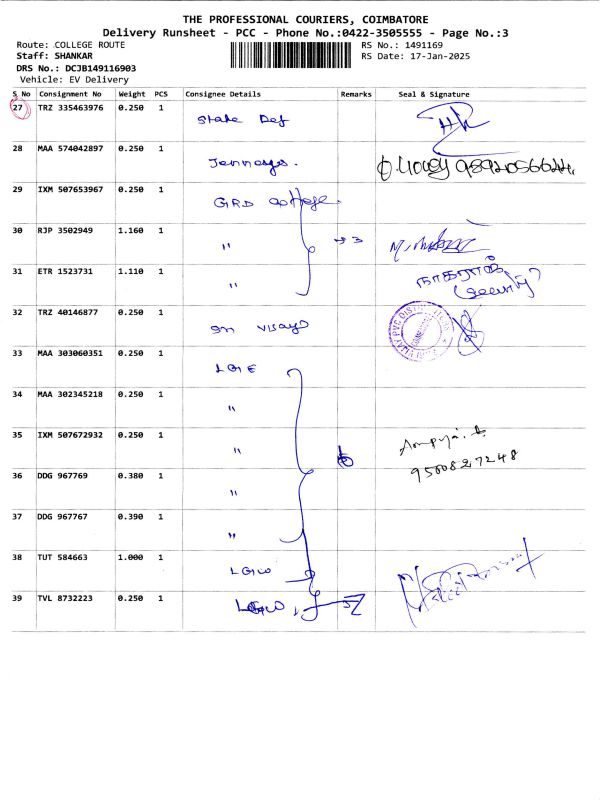 THE PROFESSIONAL COURIERS, COIMBATORE
Delivery Runsheet - PCC - Phone No.:0422-3505555 - Page No.:3
Route: COLLEGE ROUTE
Staff: SHANKAR
DRS No.: DCJB149116903
Vehicle: EV Delivery
RS No.: 1491169
RS Date: 17-Jan-2025
S No Consignment No Weight PCS Consignee Details Remarks Seal & Signature
27 TRZ 335463976 0.250 1
28 MAA 574042897 0.250 1
29 IXM 507653967 0.250 1 GRD College
30 RJP 3502949 1.160 1 " 3
31 ETR 1523731 1.110 1 "
32 TRZ 40146877 0.250 1 Sri Vijay
33 MAA 303060351 0.250 1 LGE
34 MAA 302345218 0.250 1 "
35 IXM 507672932 0.250 1 "
9500827248
36 DDG 967769 0.380 1 "
37 DDG 967767 0.390 1 "
38 TUT 584663 1.000 1 LGW
39 TVL 8732223 0.250 1 LGW